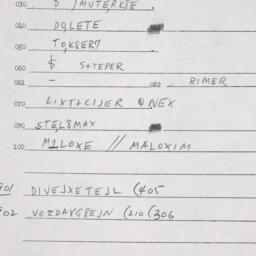 040 DQLETE
050 TQKSER7
060 $ S+TEPER
061 - 062 - RIMER
070 LIXT+CIJER @NEX
090 STEL8MAX
100 M1LOXE // MALOXIM
901 DIVEJXETEJL (405
902 VOZDAVG8EJN (210 (306